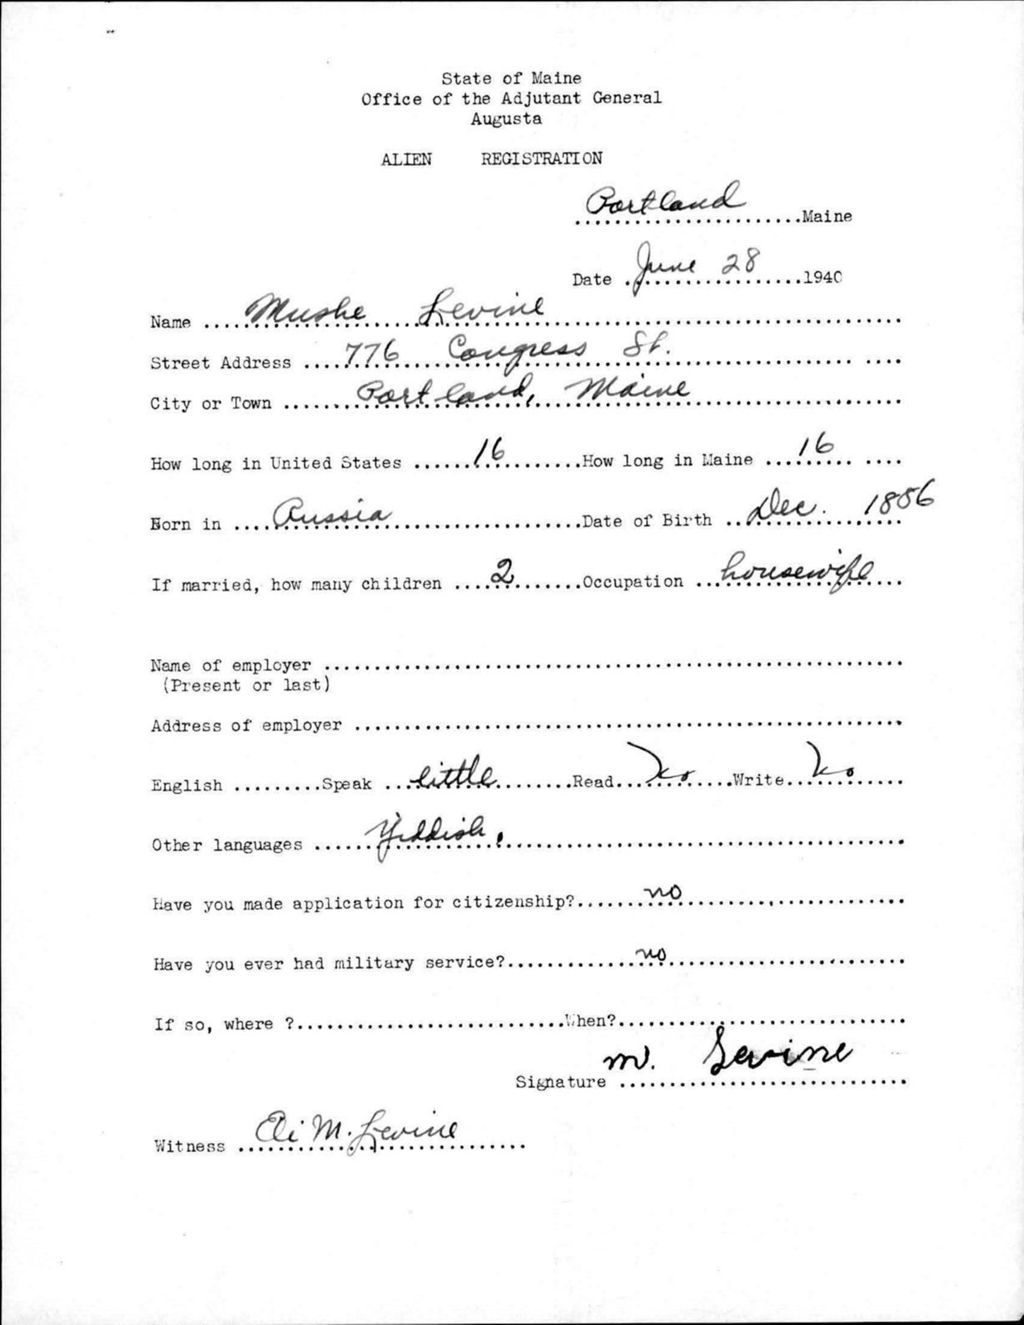 State of Maine
Office of the Adjutant General
Augusta
ALIEN REGISTRATION
Portland Maine
Date June 28 1940
Name Mushe Levine
Street Address 776 Congress St.
City or Town Portland, Maine
How long in United States 16 How long in Maine 16
Born in Russia Date of Birth Dec. 1886
If married, how many children 2 Occupation housewife
Name of employer
(Present or last)
Address of employer
English Speak little Read no Write no
Other languages Yiddish.
Have you made application for citizenship? no
Have you ever had military service? no
If so, where ? When?
Signature M. Levine
Witness Eli M. Levine